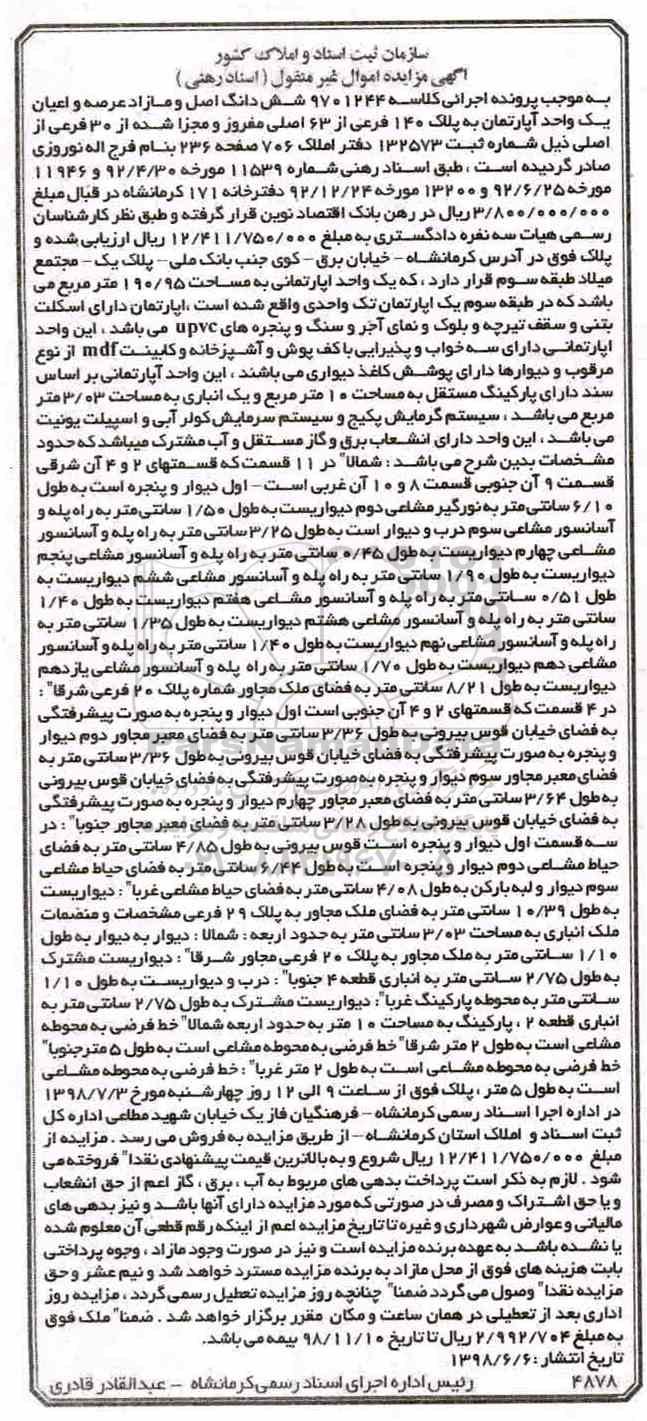 سازمان ثبت اسناد و املاک کشور
آگهی مزایده اموال غیر منقول ( اسناد رهنی )
به موجب پرونده اجرائی کلاسه ۹۷۰۱۲۴۴ شش دانگ اصل و مازاد عرصه و اعیان
یک واحد آپارتمان به پلاک ۱۴۰ فرعی از ۶۳ اصلی مفروز و مجزا شده از ۳۰ فرعی از
اصلی ذیل شماره ثبت ۱۳۲۵۷۳ دفتر املاک ۷۰۶ صفحه ۲۳۶ بنام فرج اله نوروزی
صادر گردیده است ، طبق اسناد رهنی شماره ۱۱۵۳۹ مورخه ۹۲/۴/۳۰ و ۱۱۹۴۶
مورخه ۹۲/۶/۲۵ و ۱۳۲۰۰ مورخه ۹۲/۱۲/۲۴ دفترخانه ۱۷۱ کرمانشاه در قبال مبلغ
۳/۸۰۰/۰۰۰/۰۰۰ ریال در رهن بانک اقتصاد نوین قرار گرفته و طبق نظر کارشناسان
رسمی هیات سه نفره دادگستری به مبلغ ۱۲/۴۱۱/۷۵۰/۰۰۰ ریال ارزیابی شده و
پلاک فوق در آدرس کرمانشاه – خیابان برق – کوی جنب بانک ملی – پلاک یک – مجتمع
میلاد طبقه سوم قرار دارد ، که یک واحد اپارتمانی به مساحت ۱۹۰/۹۵ متر مربع می
باشد که در طبقه سوم یک اپارتمان تک واحدی واقع شده است ،اپارتمان دارای اسکلت
بتنی و سقف تیرچه و بلوک و نمای آجر و سنگ و پنجره های upvc می باشد ، این واحد
اپارتمانی دارای سه خواب و پذیرایی با کف پوش و آشپزخانه و کابینت mdf از نوع
مرقوب و دیوارها دارای پوشش کاغذ دیواری می باشند ، این واحد آپارتمانی بر اساس
سند دارای پارکینگ مستقل به مساحت ۱۰ متر مربع و یک انباری به مساحت ۳/۰۳ متر
مربع می باشد ، سیستم گرمایش پکیج و سیستم سرمایش کولر آبی و اسپیلت یونیت
می باشد ، این واحد دارای انشعاب برق و گاز مستقل و آب مشترک میباشد که حدود
مشخصات بدین شرح می باشد : شمالا" در ۱۱ قسمت که قسمتهای ۲ و ۴ آن شرقی
قسمت ۹ آن جنوبی قسمت ۸ و ۱۰ آن غربی است – اول دیوار و پنجره است به طول
۶/۱۰ سانتی متر به نورگیر مشاعی دوم دیواریست به طول ۱/۵۰ سانتی متر به راه پله و
آسانسور مشاعی سوم درب و دیوار است به طول ۳/۲۵ سانتی متر به راه پله و آسانسور
مشاعی چهارم دیواریست به طول ۰/۴۵ سانتی متر به راه پله و آسانسور مشاعی پنجم
دیواریست به طول ۱/۹۰ سانتی متر به راه پله و آسانسور مشاعی ششم دیواریست به
طول ۰/۵۱ سانتی متر به راه پله و آسانسور مشاعی هفتم دیواریست به طول ۱/۴۰
سانتی متر به راه پله و آسانسور مشاعی هشتم دیواریست به طول ۱/۳۵ سانتی متر به
راه پله و آسانسور مشاعی نهم دیواریست به طول ۱/۴۰ سانتی متر به راه پله و آسانسور
مشاعی دهم دیواریست به طول ۱/۷۰ سانتی متر به راه پله و آسانسور مشاعی یازدهم
دیواریست به طول ۸/۲۱ سانتی متر به فضای ملک مجاور شماره پلاک ۲۰ فرعی شرقا" :
در ۴ قسمت که قسمتهای ۲ و ۴ آن جنوبی است اول دیوار و پنجره به صورت پیشرفتگی
به فضای خیابان قوس بیرونی به طول ۳/۳۶ سانتی متر به فضای معبر مجاور دوم دیوار
و پنجره به صورت پیشرفتگی به فضای خیابان قوس بیرونی به طول ۳/۳۶ سانتی متر به
فضای معبر مجاور سوم دیوار و پنجره به صورت پیشرفتگی به فضای خیابان قوس بیرونی
به طول ۳/۶۴ سانتی متر به فضای معبر مجاور چهارم دیوار و پنجره به صورت پیشرفتگی
به فضای خیابان قوس بیرونی به طول ۳/۲۸ سانتی متر به فضای معبر مجاور جنوبا" : در
سه قسمت اول دیوار و پنجره است قوس بیرونی به طول ۴/۸۵ سانتی متر به فضای
حیاط مشاعی دوم دیوار و پنجره است به طول ۶/۴۴ سانتی متر به فضای حیاط مشاعی
سوم دیوار و لبه بارکن به طول ۴/۰۸ سانتی متر به فضای حیاط مشاعی غربا" : دیواریست
به طول ۱۰/۳۹ سانتی متر به فضای ملک مجاور به پلاک ۲۹ فرعی مشخصات و منضمات
ملک انباری به مساحت ۳/۰۳ سانتی متر به حدود اربعه : شمالا : دیوار به دیوار به طول
۱/۱۰ سانتی متر به ملک مجاور به پلاک ۲۰ فرعی مجاور شرقا" : دیواریست مشترک
به طول ۲/۷۵ سانتی متر به انباری قطعه ۴ جنوبا" : درب و دیواریست به طول ۱/۱۰
سانتی متر به محوطه پارکینگ غربا" : دیواریست مشترک به طول ۲/۷۵ سانتی متر به
انباری قطعه ۲ ، پارکینگ به مساحت ۱۰ متر به حدود اربعه شمالا" خط فرضی به محوطه
مشاعی است به طول ۲ متر شرقا" خط فرضی به محوطه مشاعی است به طول ۵ متر جنوبا"
خط فرضی به محوطه مشاعی است به طول ۲ متر غربا" : خط فرضی به محوطه مشاعی
است به طول ۵ متر ، پلاک فوق از ساعت ۹ الی ۱۲ روز چهارشنبه مورخ ۱۳۹۸/۷/۳
در اداره اجرا اسناد رسمی کرمانشاه – فرهنگیان فاز یک خیابان شهید مطاعی اداره کل
ثبت اسناد و املاک استان کرمانشاه – از طریق مزایده به فروش می رسد . مزایده از
مبلغ ۱۲/۴۱۱/۷۵۰/۰۰۰ ریال شروع و به بالاترین قیمت پیشنهادی نقدا" فروخته می
شود . لازم به ذکر است پرداخت بدهی های مربوط به آب ، برق ، گاز اعم از حق انشعاب
و یا حق اشتراک و مصرف در صورتی که مورد مزایده دارای آنها باشد و نیز بدهی های
مالیاتی و عوارض شهرداری و غیره تا تاریخ مزایده اعم از اینکه رقم قطعی آن معلوم شده
یا نشده باشد به عهده برنده مزایده است و نیز در صورت وجود مازاد ، وجوه پرداختی
بابت هزینه های فوق از محل مازاد به برنده مزایده مسترد خواهد شد و نیم عشر و حق
مزایده نقدا" وصول می گردد ضمنا" چنانچه روز مزایده تعطیل رسمی گردد ، مزایده روز
اداری بعد از تعطیلی در همان ساعت و مکان مقرر برگزار خواهد شد . ضمنا" ملک فوق
به مبلغ ۲/۹۹۲/۷۰۴ ریال تا تاریخ ۹۸/۱۱/۱۰ بیمه می باشد.
تاریخ انتشار : ۱۳۹۸/۶/۶
۴۸۷۸ رئیس اداره اجرای اسناد رسمی کرمانشاه – عبدالقادر قادری